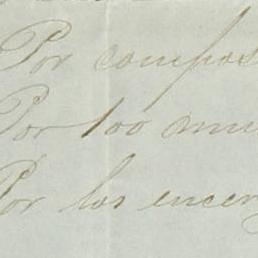 Por compos
Por 100 anu
Por los encer